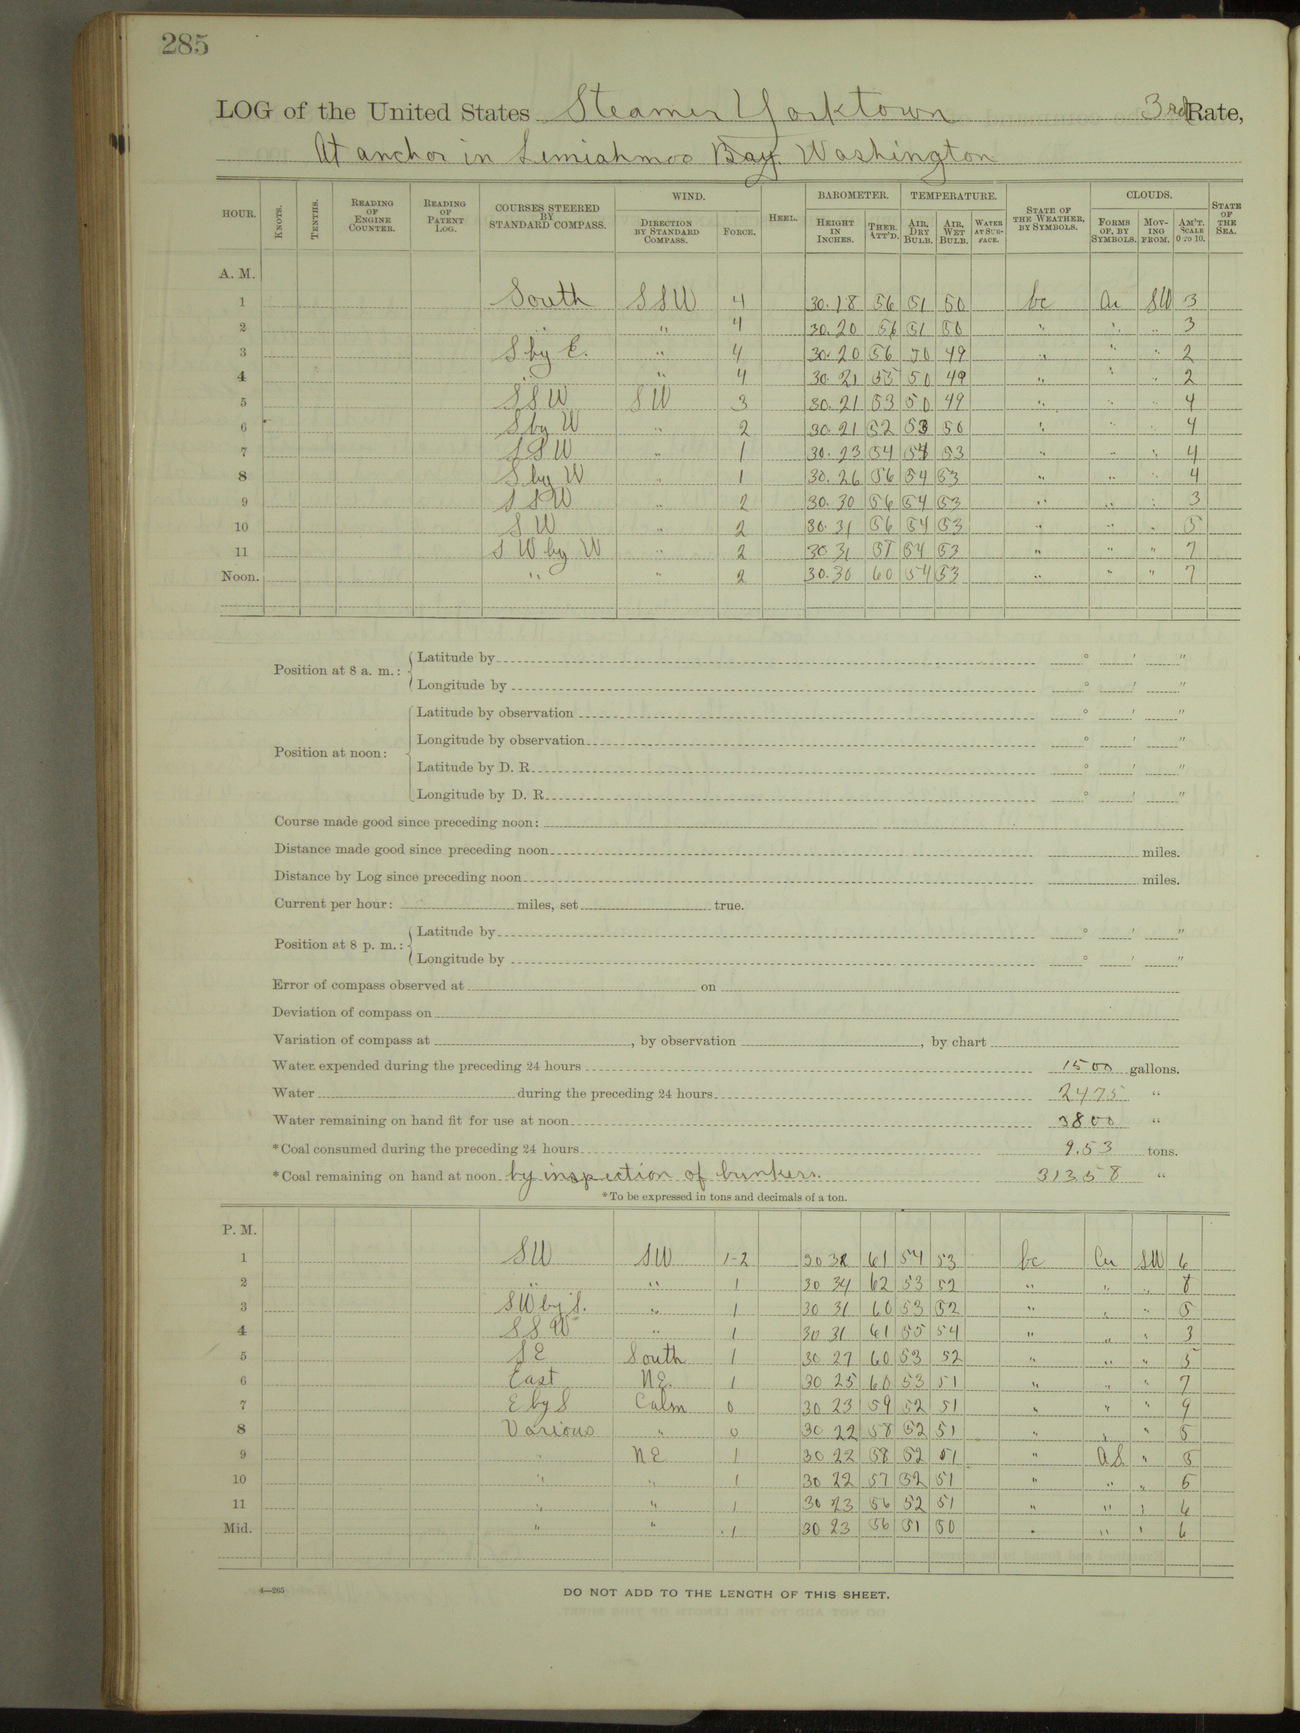 285
LOG of the United States Steamer Yorktown 3rd Rate,
At anchor in Semiahmoo Bay. Washington
HOUR. KNOTS. TENTHS. READING OF ENGINE COUNTER. READING OF PATENT LOG. COURSES STEERED BY STANDARD COMPASS. WIND. DIRECTION BY STANDARD COMPASS. FORCE. HEEL. BAROMETER. HEIGHT IN INCHES. THER. ATT'D. TEMPERATURE. AIR, DRY BULB. AIR, WET BULB. WATER AT SURFACE. STATE OF THE WEATHER, BY SYMBOLS. CLOUDS. FORMS OF, BY SYMBOLS. MOVING FROM. AM'T. SCALE 0 TO 10. STATE OF THE SEA.
A. M.
1 South SSW 4 30.18 56 51 50 bc Cu SW 3
2 " " 4 30.20 56 51 50 " " " 3
3 S by E. " 4 30.20 56 50 49 " " " 2
4 " " 4 30.21 55 50 49 " " " 2
5 SSW SW 3 30.21 53 50 49 " " " 4
6 S by W " 2 30.21 52 53 50 " " " 4
7 SSW " 1 30.23 54 54 53 " " " 4
8 S by W " 1 30.26 56 54 53 " " " 4
9 SSW " 2 30.30 56 54 53 " " " 3
10 SW " 2 30.31 56 54 53 " " " 5
11 SW by W " 2 30 31 58 54 53 " " " 7
Noon. " " 2 30.30 60 54 53 " " " 7
Position at 8 a. m.: Latitude by ° ' "
Longitude by ° ' "
Position at noon: Latitude by observation ° ' "
Longitude by observation ° ' "
Latitude by D. R. ° ' "
Longitude by D. R. ° ' "
Course made good since preceding noon:
Distance made good since preceding noon miles.
Distance by Log since preceding noon miles.
Current per hour: miles, set true.
Position at 8 p. m.: Latitude by ° ' "
Longitude by ° ' "
Error of compass observed at on
Deviation of compass on
Variation of compass at , by observation , by chart
Water expended during the preceding 24 hours 1500 gallons.
Water during the preceding 24 hours 2475 "
Water remaining on hand fit for use at noon 3800 "
*Coal consumed during the preceding 24 hours 9.53 tons.
*Coal remaining on hand at noon by inspection of bunkers. 313.58 "
*To be expressed in tons and decimals of a ton.
P. M.
1 SW SW 1-2 30 61 54 53 bc Cu SW 6
2 " " 1 30 34 62 53 52 " " " 8
3 SW by S. " 1 30 31 60 53 52 " " " 5
4 SSW " 1 30 31 61 55 54 " " " 3
5 SE South 1 30 27 60 53 52 " " " 5
6 East NE. 1 30 25 60 53 51 " " " 7
7 E by S Calm 0 30 23 59 52 51 " " " 9
8 Various " 0 30 22 58 52 51 " " " 5
9 " NE 1 30 22 58 52 51 " A.S. " 5
10 " " 1 30 22 57 52 51 " " " 6
11 " " 1 30 23 56 52 51 " " " 6
Mid. " " 1 30 23 56 51 50 " " " 6
4—265
DO NOT ADD TO THE LENGTH OF THIS SHEET.